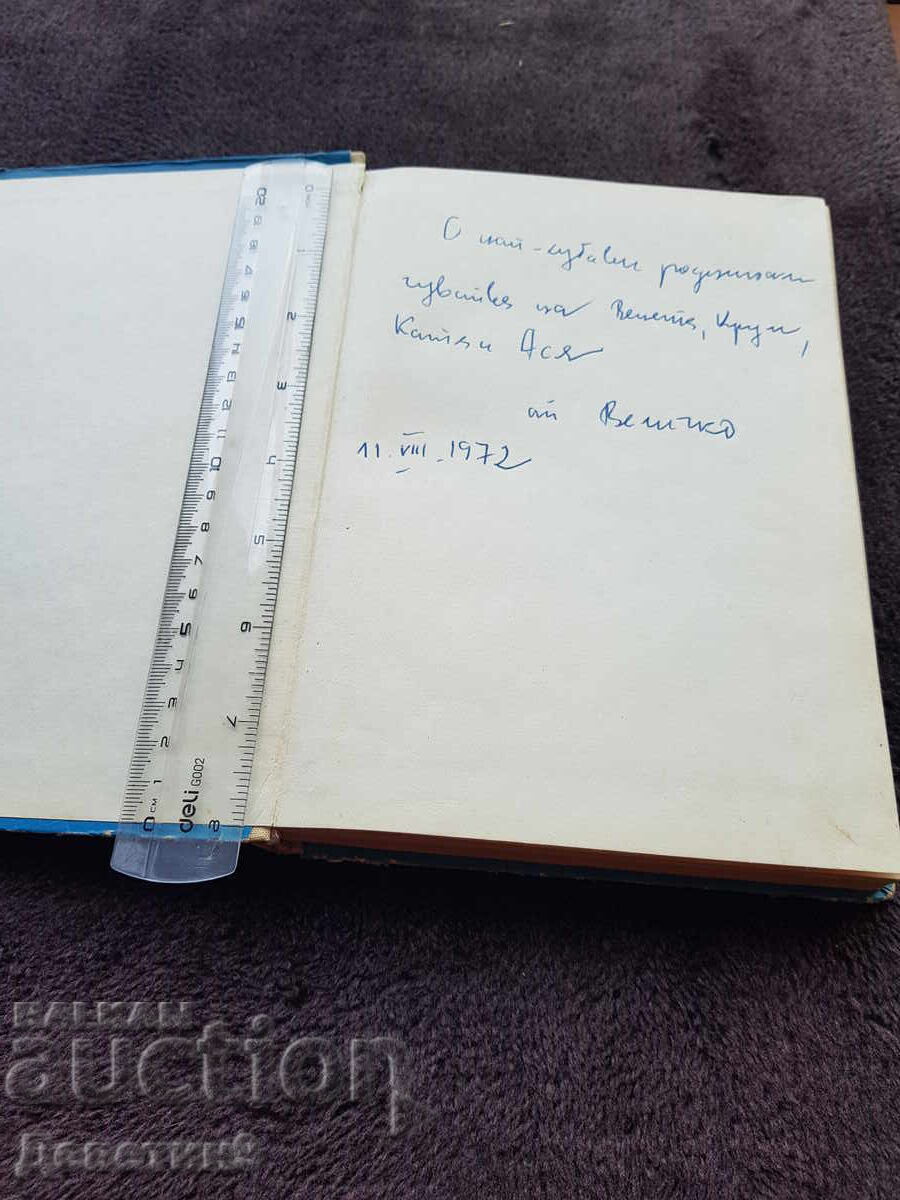 С най-хубави роднински
чувства на Венета, Крум,
Катя и Ася
от Величко
11.VIII.1972
0 см 1 2 3 4 5 6 7 8 9 10 11 12 13 14 15 16 17 18 19 20
0 1 2 3 4 5 6 7 8
deli G002
BALKAN
auction